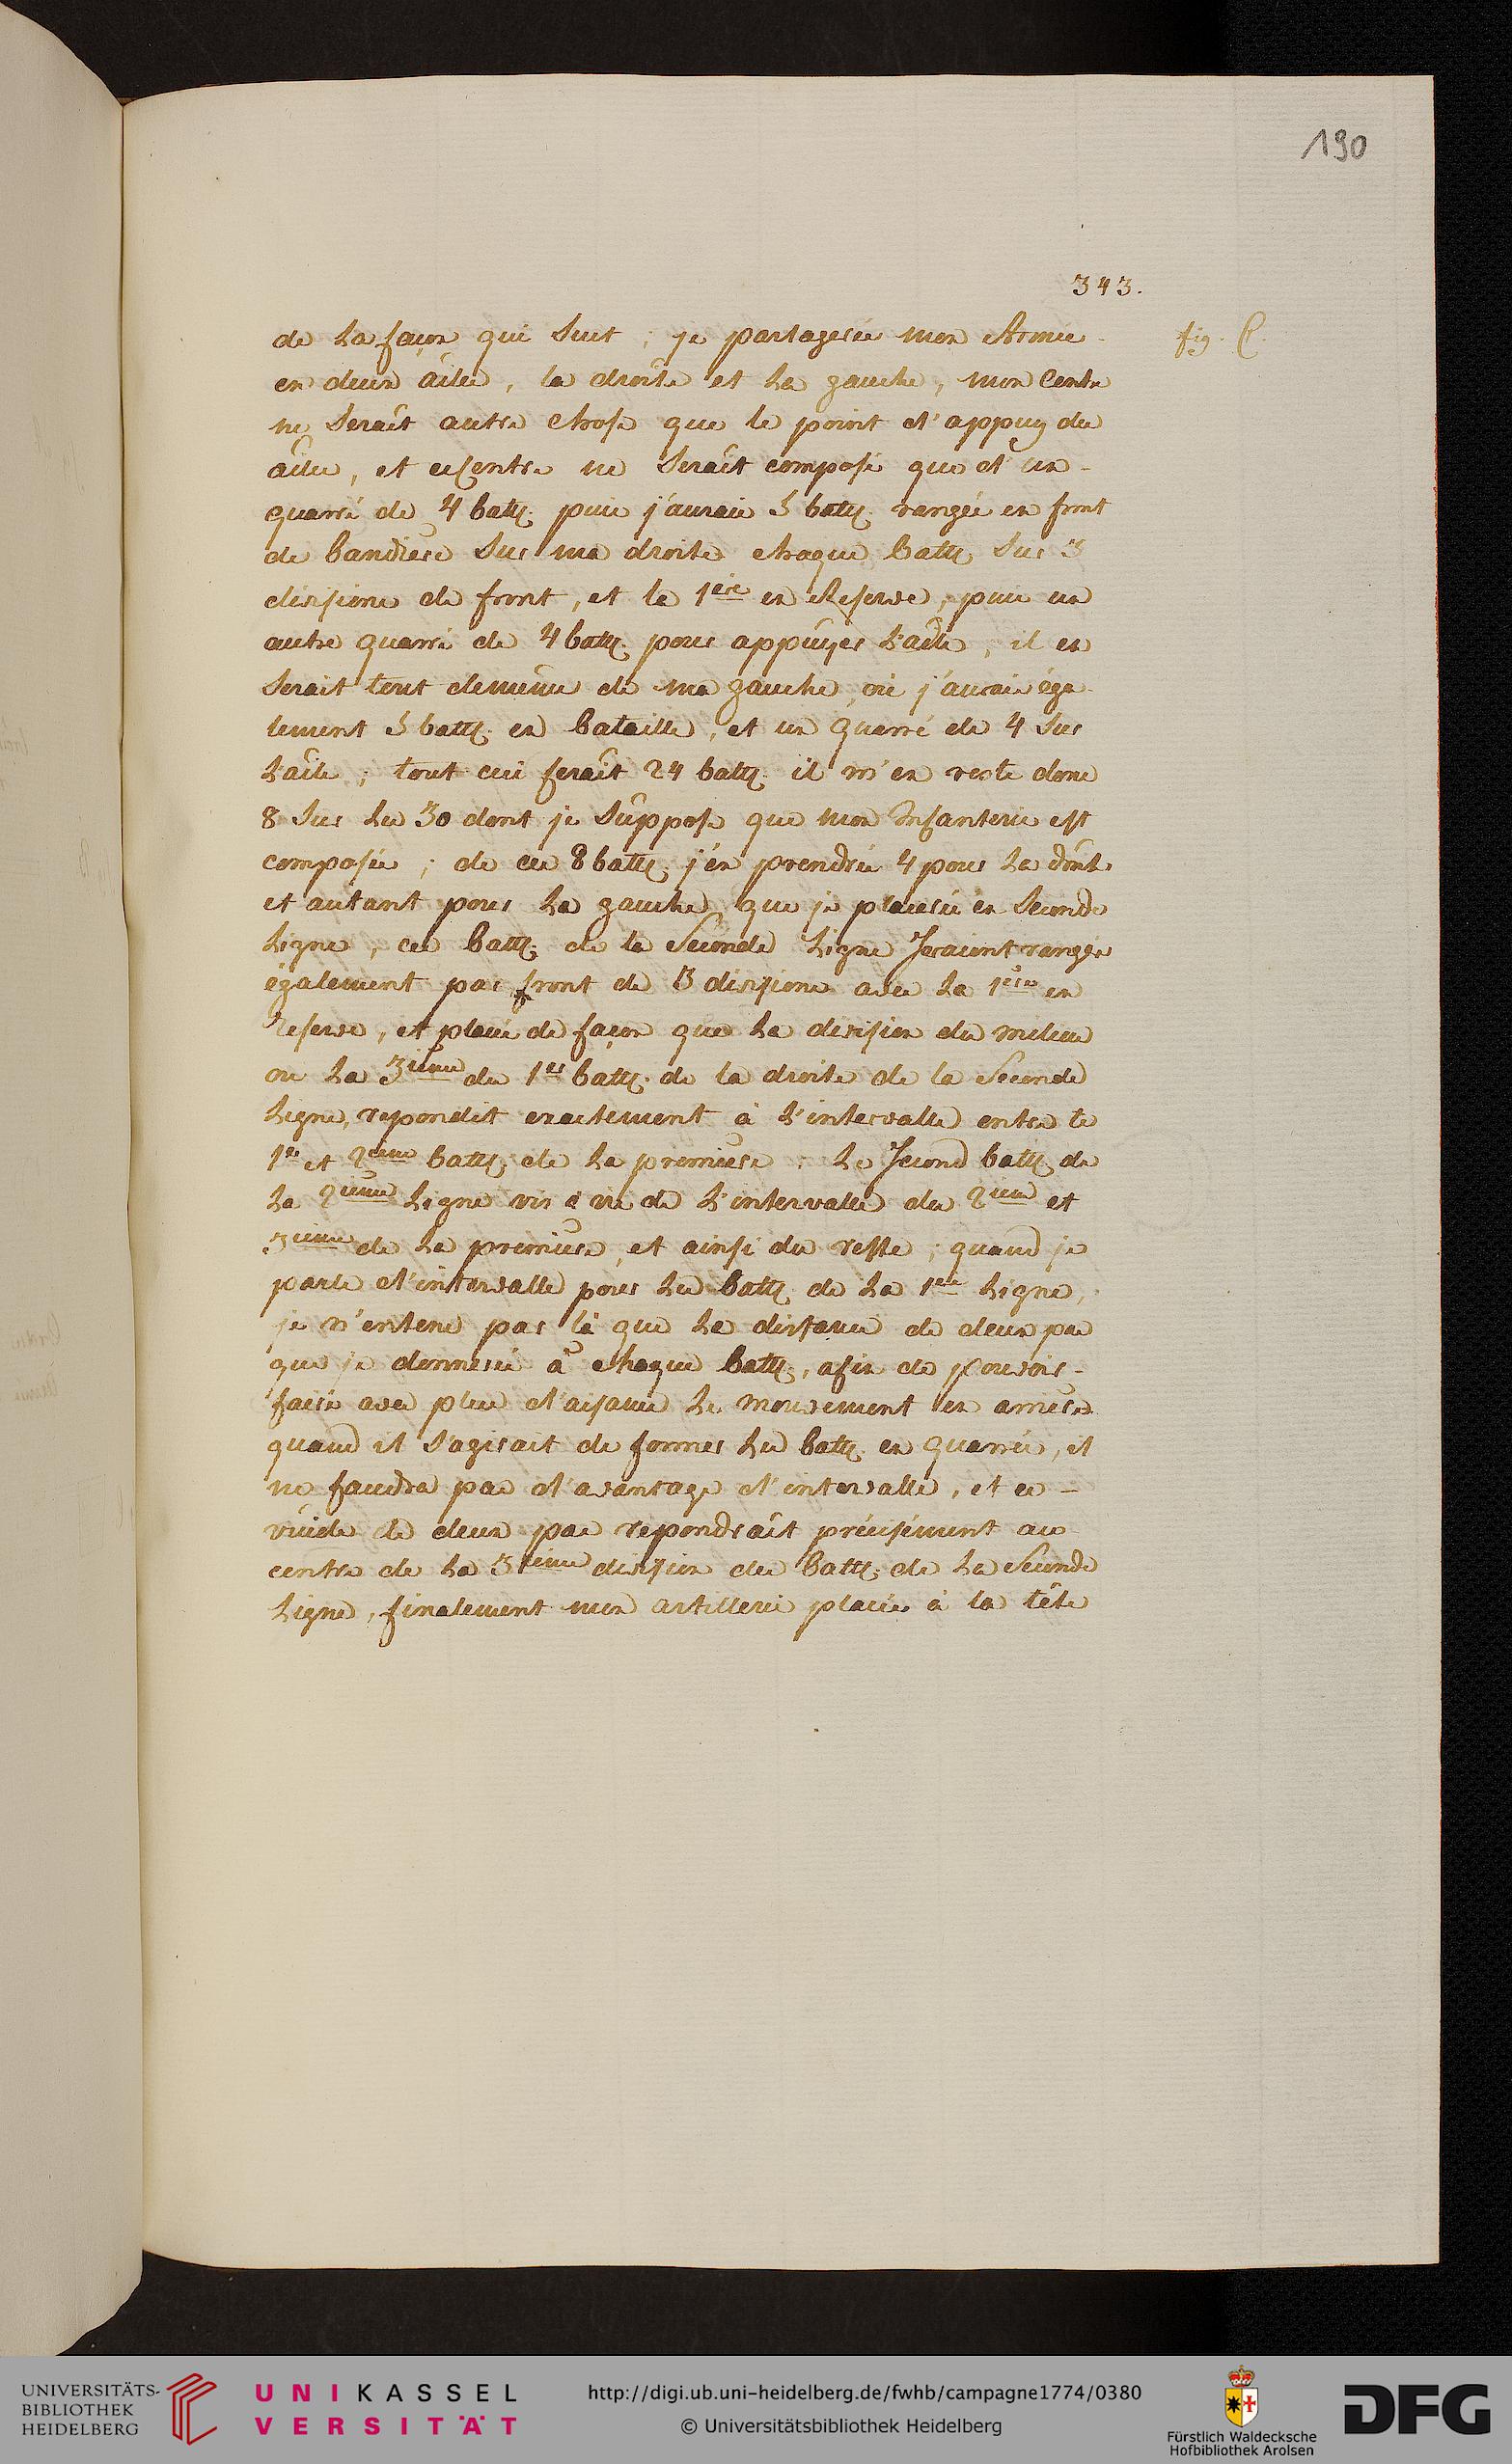 190
343.
de la façon qui suit ; je partagerai mon Armée
fig. C.
en deux ailes, la droite et la gauche, mon Centre
ne serait autre chose que le point d'appuy des
ailes, et ce Centre ne serait composé que d'un
quarré de 4 batt. puis j'aurais 5 batt. rangés en front
de bandiere sur ma droite chaque batt. sur 3
divisions de front, et la 1ere en Reserve, puis un
autre quarré de 4 batt. pour appuyer l'aile, il en
serait tout de même de ma gauche, où j'aurais éga-
lement 5 batt. en bataille, et un quarré de 4 sur
l'aile ; tout ceci ferait 24 batt. il m'en reste donc
8 sur les 30 dont je suppose que mon Infanterie est
composée ; de ces 8 batt. j'en prendrai 4 pour la droite
et autant pour la gauche que je placerai en seconde
Ligne, ces batt. de la seconde Ligne seraient rangés
également par front de 3 divisions avec la 1ere en
reserve, et placés de façon que la division du milieu
ou la 3ieme du 1er batt. de la droite de la seconde
Ligne, repondit exactement à l'intervalle entre le
1er et 2ieme batt. de la premiere ; le second batt. de
la 2ieme Ligne vis à vis de l'intervalle du 2ieme et
3ieme de la premiere, et ainsi du reste ; quand je
parle d'intervalle pour les batt. de la 1ere Ligne,
je n'entens par là que la distance de deux pas
que je donnerai à chaque batt., afin de pouvoir
faire avec plus d'aisance le mouvement en arriere
quand il s'agirait de former les batt. en quarrés, il
ne faudra pas d'avantage d'intervalle, et ce
vuide de deux pas repondrait précisément au
centre de la 3ieme division des batt. de la seconde
Ligne, finalement mon artillerie placée à la tête
UNIVERSITÄTS-
BIBLIOTHEK
HEIDELBERG
UNIKASSEL
VERSITÄT
http://digi.ub.uni-heidelberg.de/fwhb/campagne1774/0380
© Universitätsbibliothek Heidelberg
Fürstlich Waldecksche
Hofbibliothek Arolsen
DFG